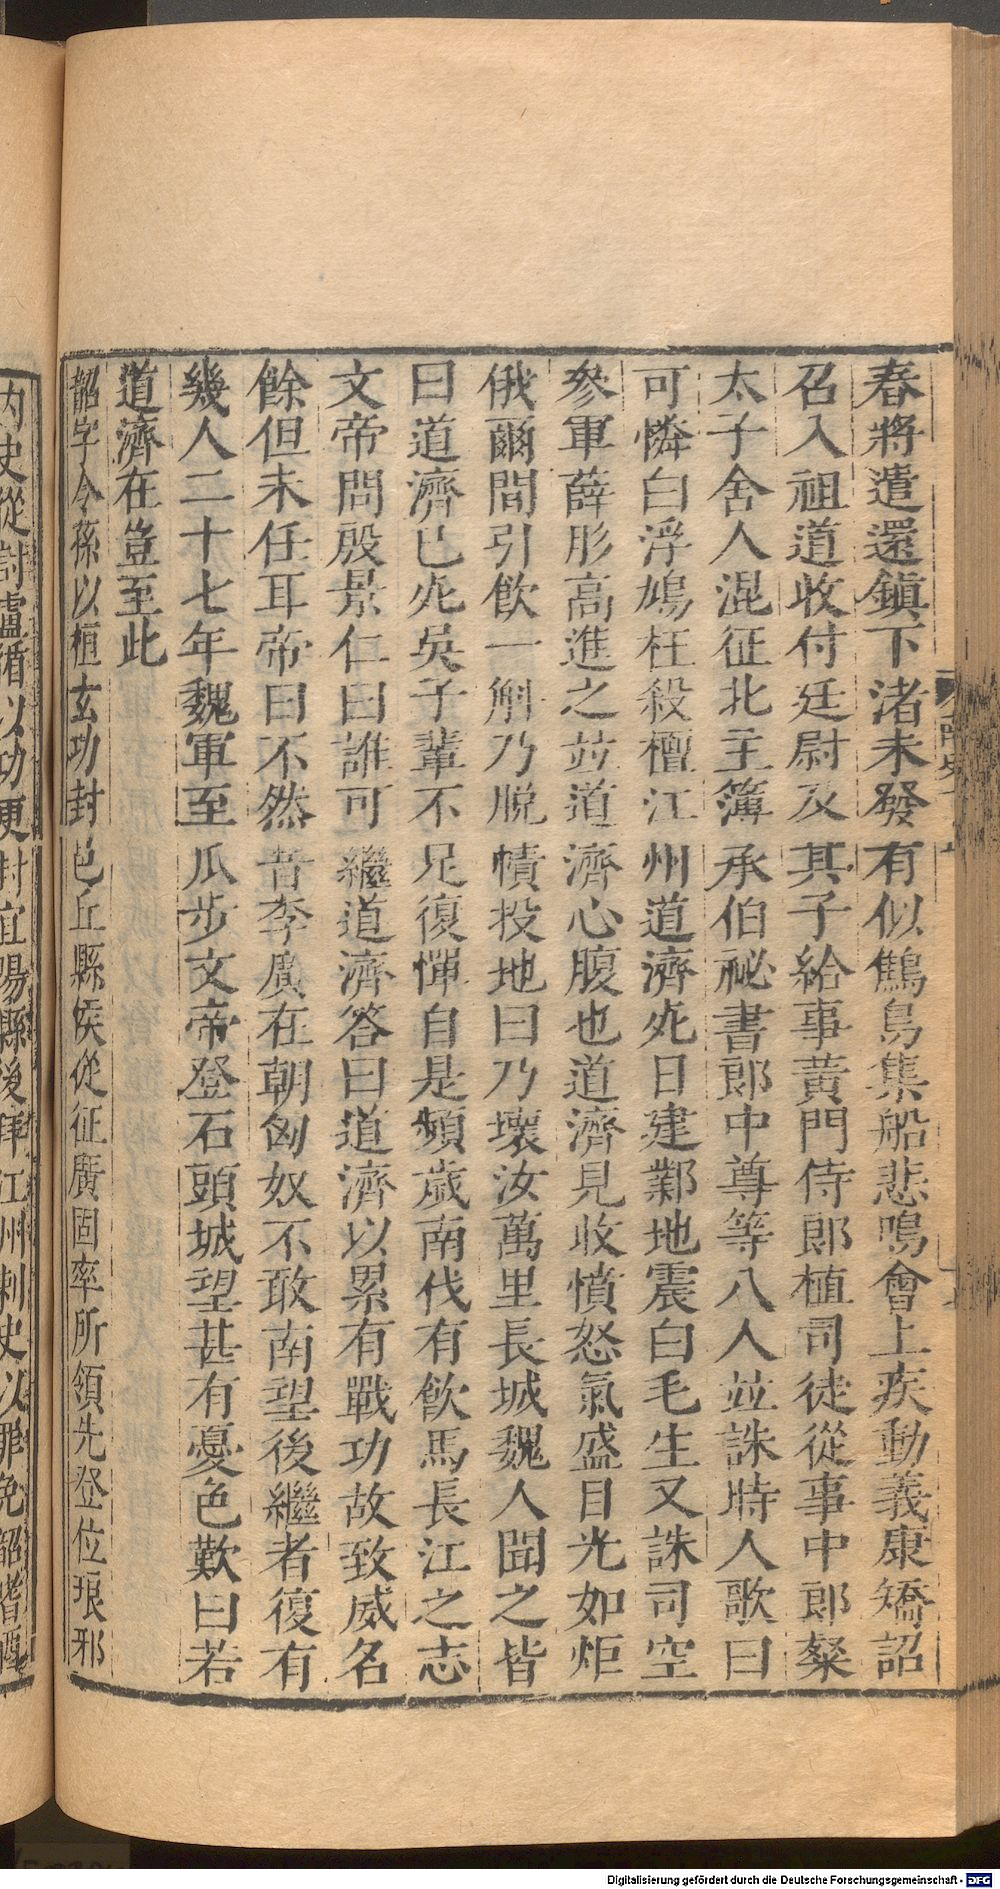 春將遣還鎮下渚未發有似鷦鳥集船悲鳴會上疾動義康矯詔
召入祖道收付廷尉及其子給事黃門侍郎植司徒從事中郎粲
太子舍人混征北主簿承伯祕書郎中尊等八人竝誅時人歌曰
可憐白浮鳩枉殺檀江州道濟死日建鄴地震白毛生又誅司空
參軍薛彤高進之竝道濟心腹也道濟見收憤怒氣盛目光如炬
俄爾間引飲一斛乃脫幘投地曰乃壞汝萬里長城魏人聞之皆
曰道濟已死吳子輩不足復憚自是頻歲南伐有飲馬長江之志
文帝問殷景仁曰誰可繼道濟答曰道濟以累有戰功故致威名
餘但未任耳帝曰不然昔李廣在朝匈奴不敢南望後繼者復有
幾人二十七年魏軍至瓜步文帝登石頭城望甚有憂色歎曰若
道濟在豈至此
韶字令孫以桓玄功封邑丘縣侯從征廣固率所領先登位琅邪
內史從討盧循以功更封宜陽縣後拜江州刺史以罪免韶嗜酒
Digitalisierung gefördert durch die Deutsche Forschungsgemeinschaft - DFG